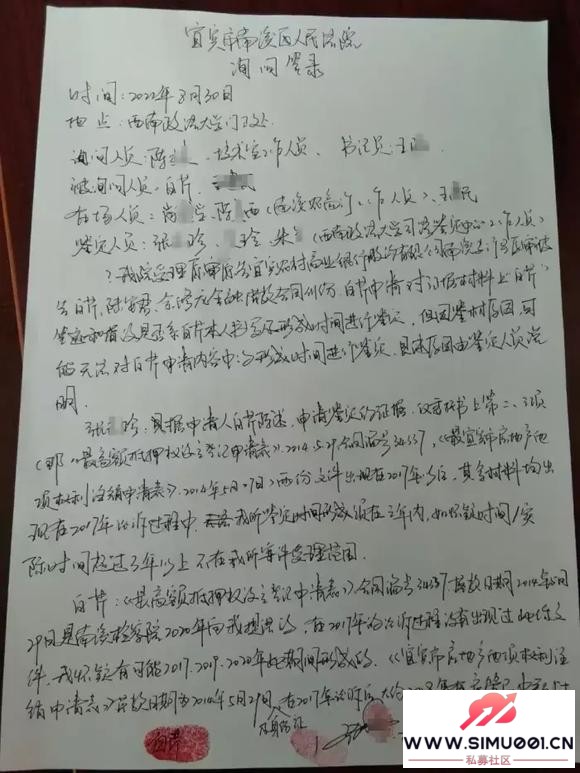 宜宾市南溪区人民法院
询问笔录
时间：2022年8月30日
地点：西南政法大学门卫处
询问人员：陈 、技术室工作人员、书记员：王
被询问人员：白芹、
在场人员：肖 学、陈 西（南溪农商行工作人员）、王 民
鉴定人员：张 珍、 玲、朱 （西南政法大学司法鉴定中心工作人员）
？我院受理原审原告宜宾农村商业银行股份有限公司南溪支行与原审被
告白芹、陈 君、 金融借款合同纠纷，白芹申请对证据材料上白芹
签名和 是否系白芹本人书写及形成时间进行鉴定，但因鉴材原因，可
能无法对白芹申请内容中的形成时间进行鉴定，具体原因由鉴定人员说
明。
张 珍：根据申请人白芹陈述，申请鉴定的证据，仅委托书上第二、三项
（即《最高额抵押权设立登记申请表》，2014.5.29，合同编号34557，《宜宾市房地产他
项权利注销申请表》，2014年5月27日）两份文件出现在2017年以后，其余材料均出
现在2017年诉讼过程中， 我所鉴定时间形成须在三年内，如怀疑时间与实
际时间超过三年以上不在我所案件受理范围。
白芹：《最高额抵押权设立登记申请表》，合同编号34557落款日期2014年5月
29日是南溪检察院2020年向我提供的，在2017年的诉讼过程没有出现过此份文
件，我怀疑有可能2017、2019、2020年此期间形成的。《宜宾市房地产他项权利注
销申请表》落款日期为2014年5月29日，在2017年诉讼后
及身份证
白芹
WWW.SIMU001.CN
私募社区